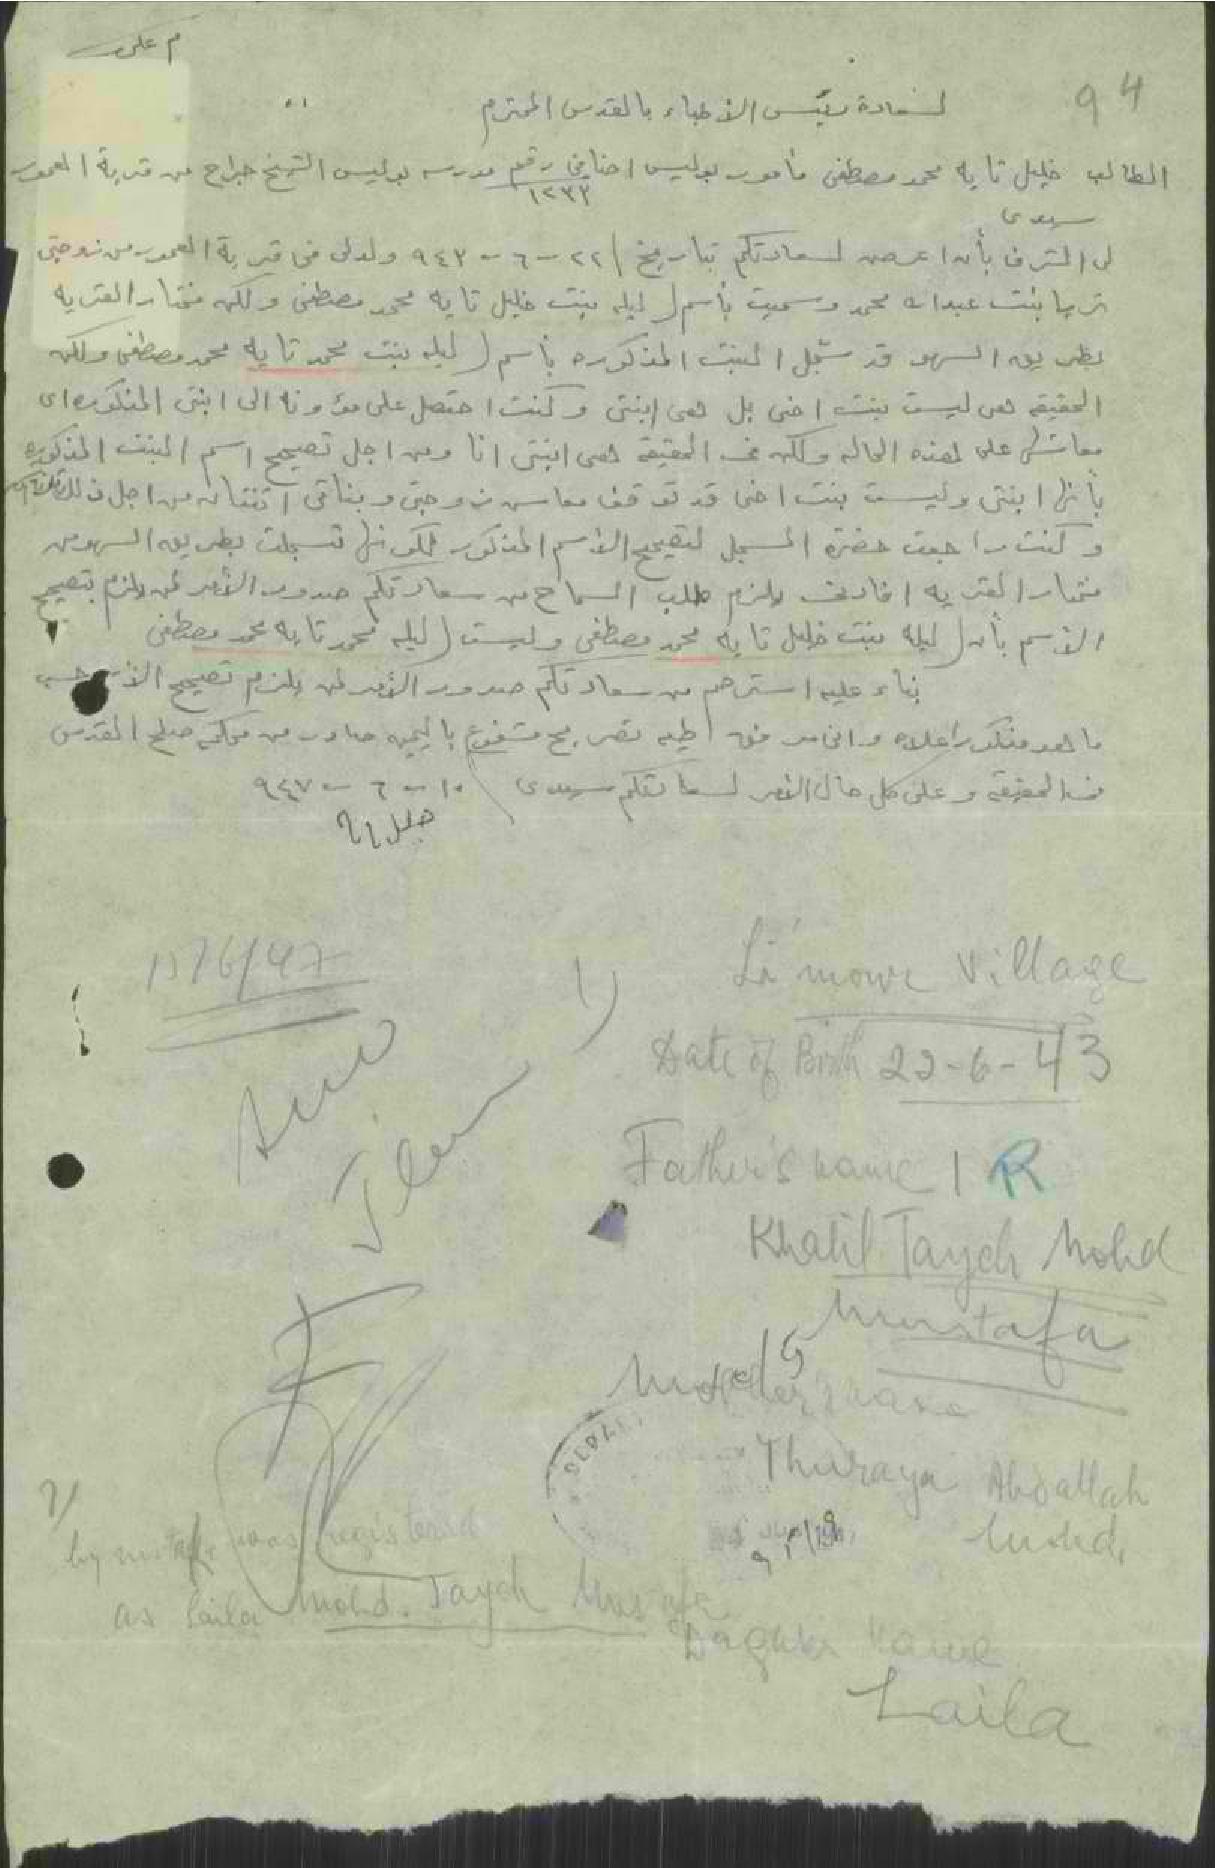 94
لسعادة رئيس الأطباء بالقدس المحترم
الطالب خليل تايه محمد مصطفى مأمور بوليس اضافي رقم ١٢٣٣ مدرسه بوليس الشيخ جراح من قرية العمور
سيدى
لى الشرف بأن اعرض لسعادتكم بتاريخ ٢٢ - ٦ - ٩٤٣ ولد لى فى قرية العمور من زوجتى
ثريا بنت عبدالله محمد وسميت بأسم (ليله بنت خليل تايه محمد مصطفى ولكن مختار القريه
بطريق السهو قد سجل البنت المذكوره بأسم (ليله بنت محمد تايه محمد مصطفى ولكن
الحقيقه هى ليست بنت اخى بل هى ابنتى وكنت احتصل على مؤونه الى ابنتى المذكوره اى
معاشها على هذه الحاله ولكن فى الحقيقه هى ابنتى انا ومن اجل تصحيح اسم البنت المذكوره
بأنها ابنتى وليست بنت اخى قد توقف معاش زوجتى وبناتى اثنتان من اجل ذلك
وكنت راجعت حضرة المسجل لتصحيح الأسم المذكور لكونها تسجلت بطريق السهو من
مختار القريه افادنى يلزم طلب السماح من سعادتكم صدور الأمر لمن يلزم بتصحيح
الأسم بأن (ليله بنت خليل تايه محمد مصطفى وليست (ليله محمد تايه محمد مصطفى
بناء عليه استرحم من سعادتكم صدور الأمر لمن يلزم تصحيح الأسم حسب
ما هو مذكور اعلاه وانى مرفق طيه تصريح مشفوع باليمين صادر من محكمة صلح القدس
فى الحقيقه وعلى كل حال الأمر لسعادتكم سيدى ١٠ - ٦ - ٩٤٧
1)
village
Date of Birth 22-6-43
Father's name R
Khalil Tayeh Mohd
Mustafa
Mother's name
Thuraya Abdallah
Mohd.
2/
by mistake was registered
as Laila Mohd. Tayeh Mustafa
name
Laila